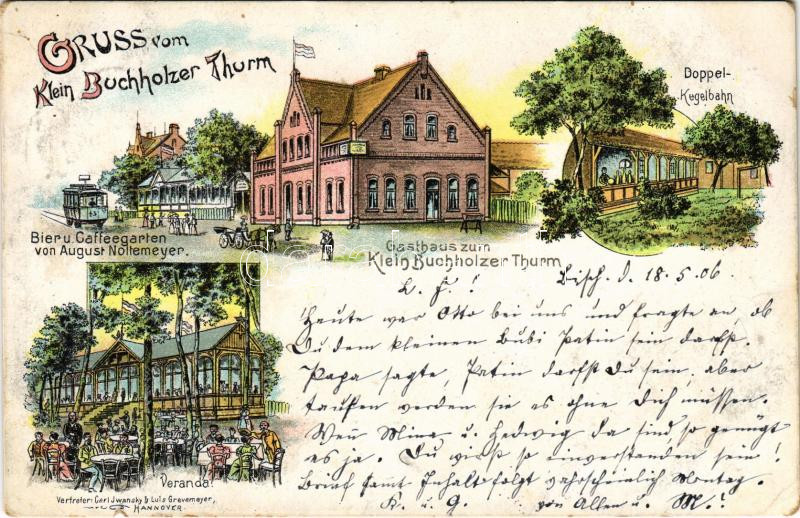 GRUSS vom
Klein Buchholzer Thurm
Doppel-
Kegelbahn
Bier u. Caffeegarten
von August Noltemeyer.
Gasthaus zum
Klein Buchholzer Thurm
d. 18.5.06.
L. F.!
Heute war Otto bei uns und fragte an, ob
Du dem kleinen Bubi Patin sein darfst.
Papa sagte, Patin darfst Du sein, aber
taufen werden sie es ohne Dich müssen.
Wen Mine u. Hedwig da sind so genügt
es ja. Du wirst so einverstanden sein!
Brief samt Inhalt folgt wahrscheinlich Montag.
K. u. G. von Allen u. M.!
Veranda.
Vertreter: Carl Jwansky & Luis Grevemeyer,
HANNOVER.